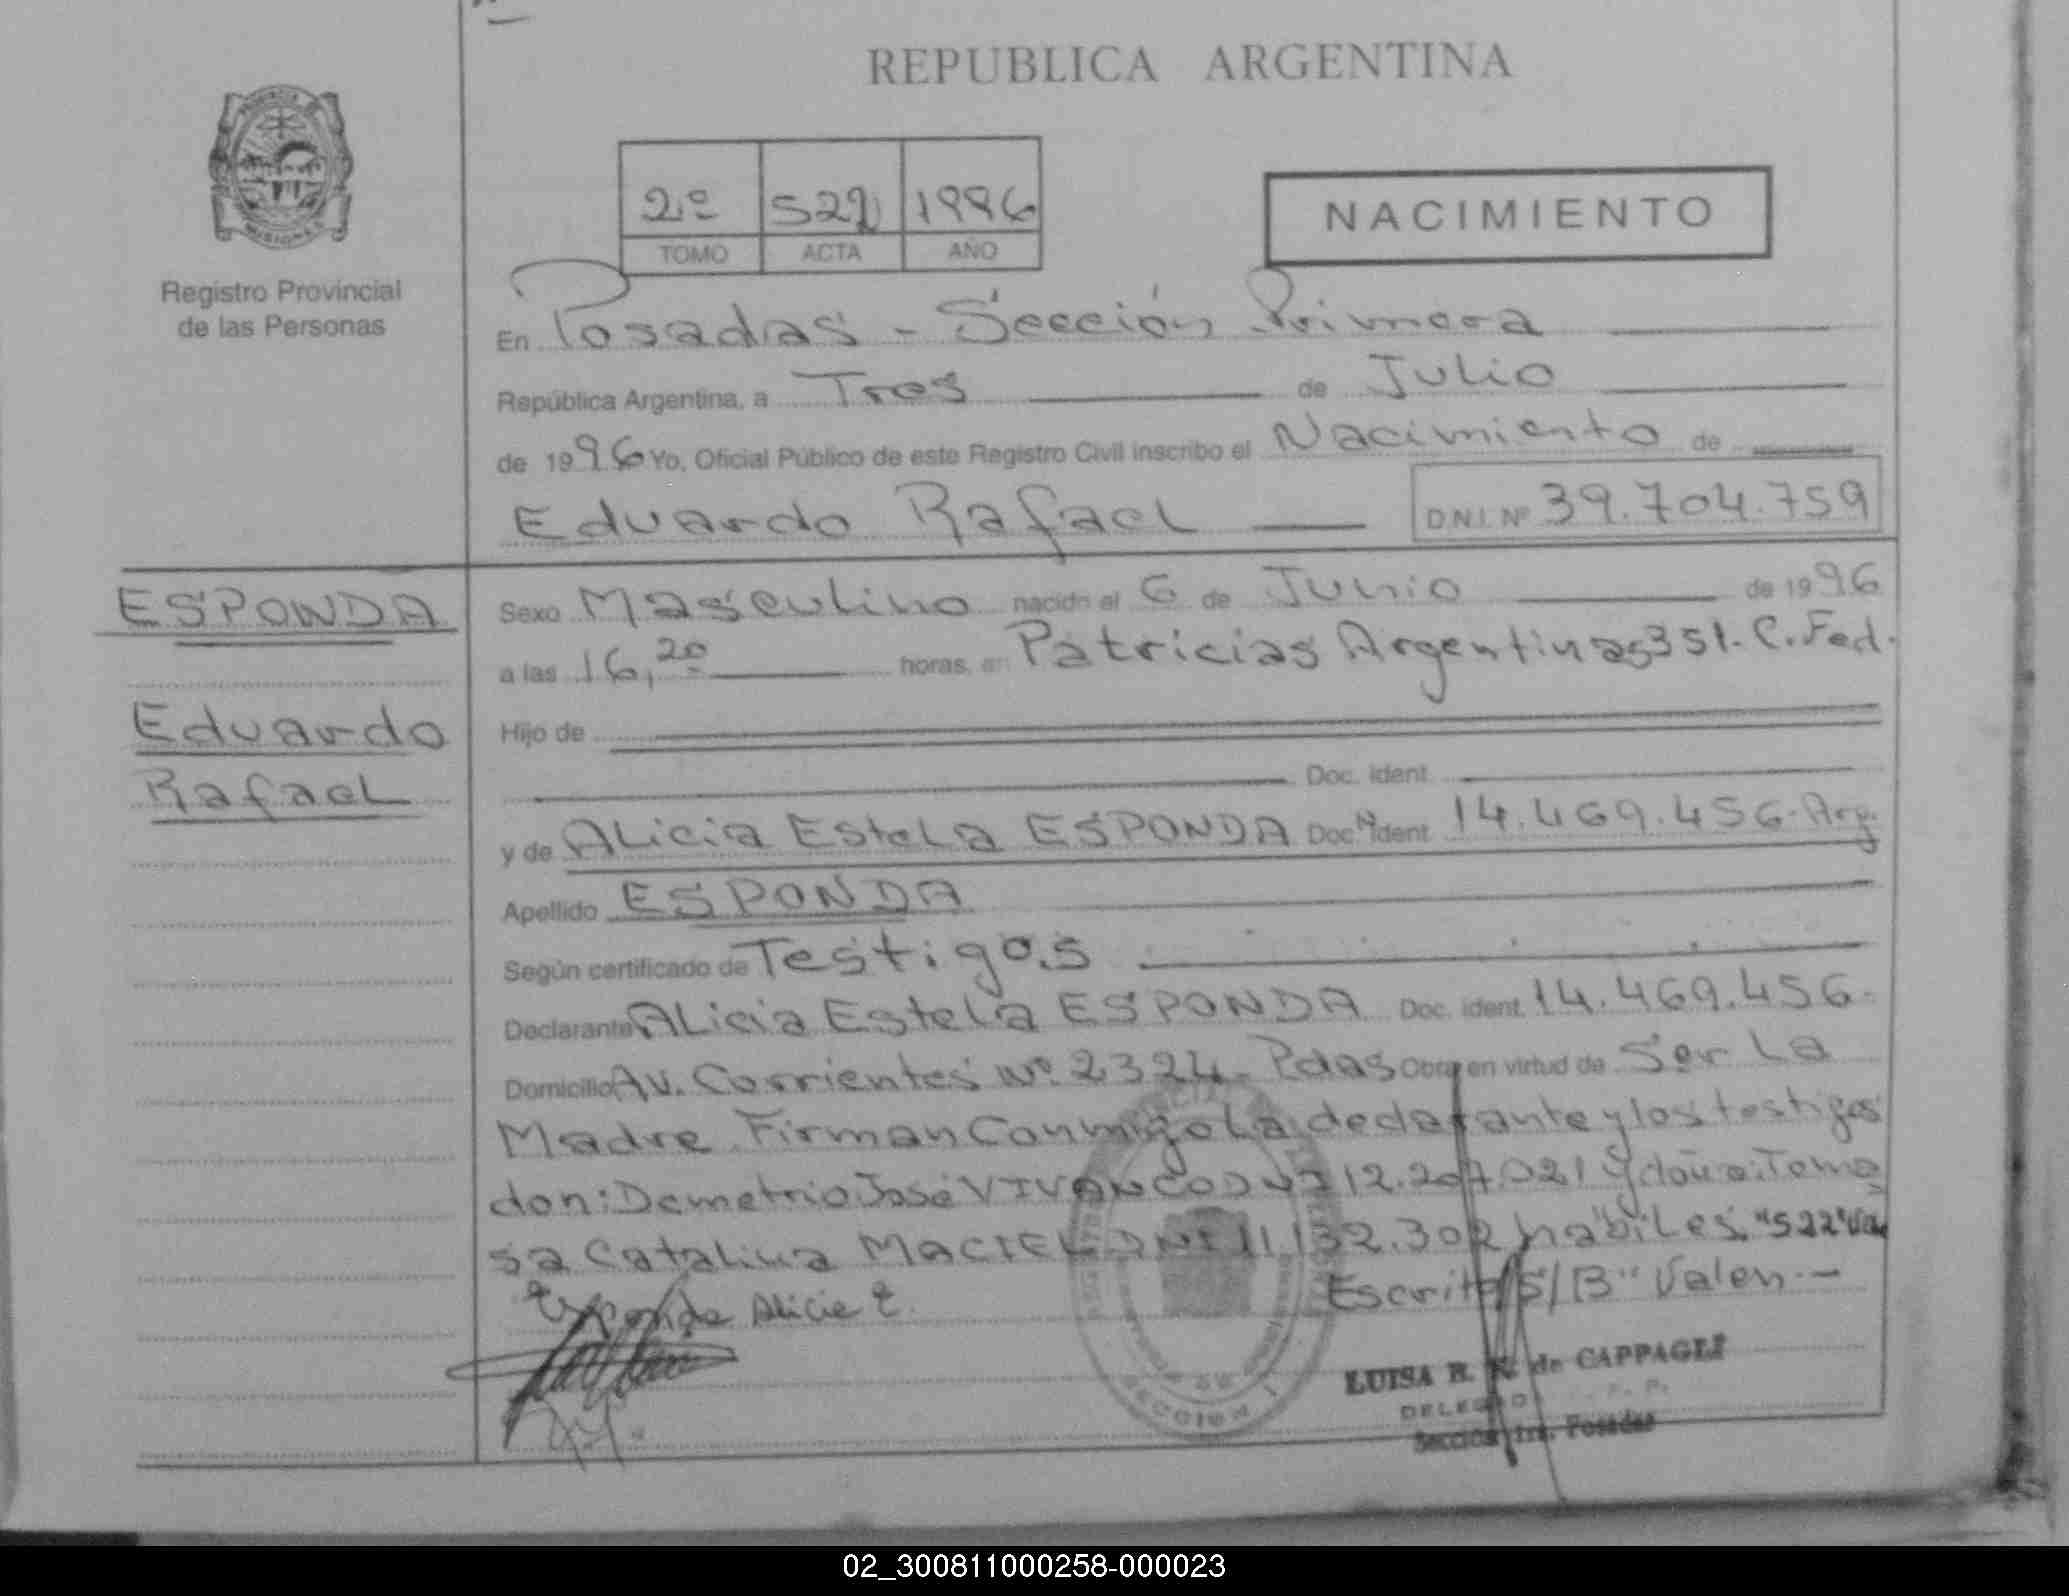 REPUBLICA ARGENTINA
PROVINCIA DE
MISIONES
Registro Provincial
de las Personas
2º 522 1996
TOMO ACTA AÑO
NACIMIENTO
En Posadas - Sección Primera
República Argentina, a Tres de Julio
de 1996 Yo, Oficial Público de este Registro Civil inscribo el Nacimiento de
Eduardo Rafael D.N.I. Nº 39.704.759
ESPONDA
Eduardo
Rafael
Sexo Masculino nacido el 6 de Junio de 1996
a las 16,20 horas, en Patricias Argentinas 351. C. Fed.
Hijo de
Doc. ident.
y de Alicia Estela ESPONDA Doc. ident. 14.469.456. Arg.
Apellido ESPONDA
Según certificado de Testigos
Declarante Alicia Estela ESPONDA Doc. ident. 14.469.456.
Domicilio Av. Corrientes Nº 2324 - Pdas Obra en virtud de Ser La
Madre Firman Conmigo La declarante y los testigos
don: Demetrio José VIVANCO DNI 12.207.021 y doña: Toma
sa Catalina MACIEL DNI 11.132.302 habiles. "522" Va
Escrito S/B" Valen. -
Esponda Alicia E.
SECCION 1
LUISA R. de CAPPAGLI
Sección 1ra. Posadas
02_300811000258-000023